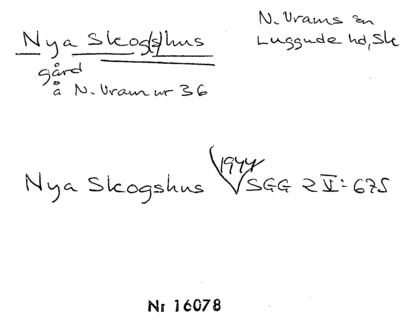 Nya Skog(s)hus
N. Vrams sn
Luggude hd, Sk
gård
å N. Vram nr 36
Nya Skogshus 1944 SGG 2 V: 675
Nr 16078